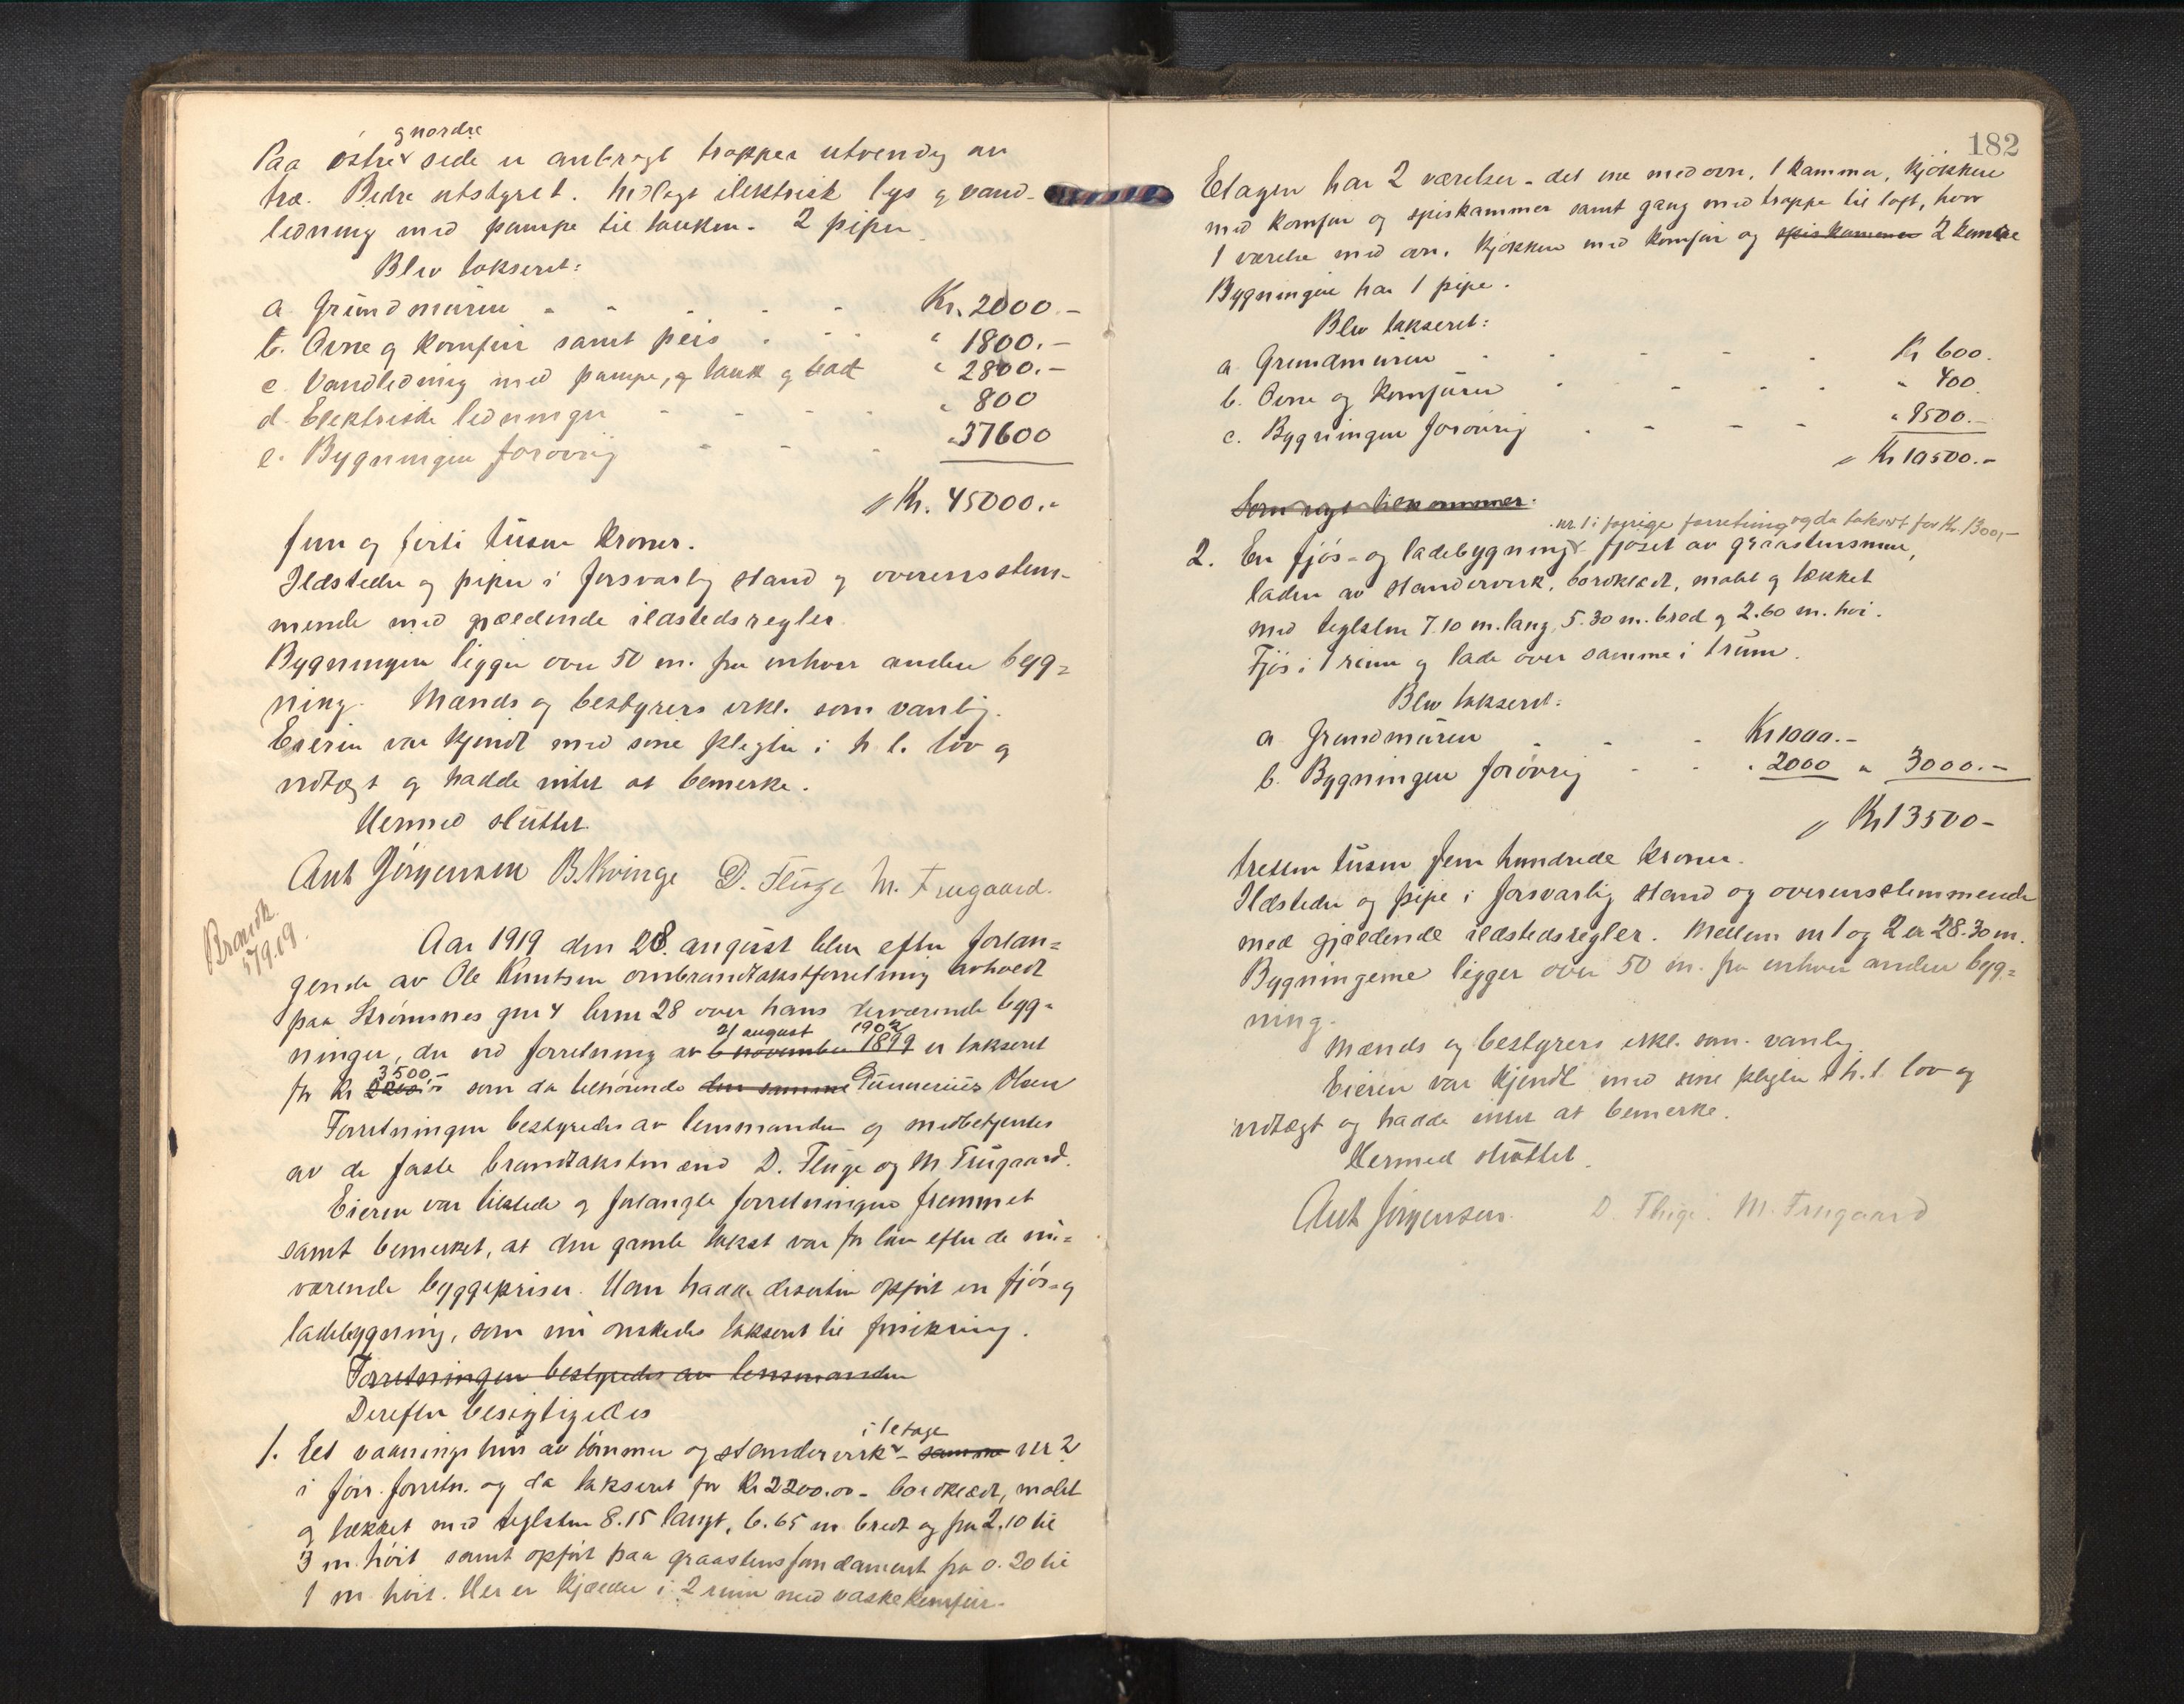 og nordre
Paa østre sede er anbragt trapper utvendig av
træ. Bedre utstyret. Indlagt elektrisk lys og vand-
ledning med pumpe til tanken. 2 piper.
Blev takseret:
a. Grundmuren Kr. 2000.-
b. Ovne og komfur samt peis " 1800.-
c. Vandledning med pumpe, og tank og bad " 2800.-
d. Elektriske ledninger " 800
e. Bygningen forøvrig " 37600
Kr. 45000.-
Fem og førti tusen kroner.
Ildsteder og piper i forsvarlig stand og overensstem-
mende med gjældende ildstedsregler.
Bygningen ligger over 50 m. fra enhver anden byg-
ning. Mænds og bestyrers erkl. som vanlig.
Eieren var kjendt med sine pligter i h. t. lov og
vedtægt og hadde intet at bemerke.
Hermed sluttet.
Ant Jørgensen B. Kvinge D. Fluge M. Frugaard.
Brandk.
5/9.19.
Aar 1919 den 28. august blev efter forlan-
gende av Ole Knutsen ombrandtakstforretning avholdt
paa Strømsnes gnr 4 brnr 28 over hans derværende byg-
21 august 1902
ninger, der ved forretning av 6 november 1899 er takseret
3500.-
for kr som da tilhørende den samme Gunnerius Olsen
Forretningen bestyredes av lensmanden og medbetjentes
av de faste brandtakstmænd D. Fluge og M Frugaard.
Eieren var tilstede og forlangte forretningen fremmet
samt bemerket, at den gamle takst var for lav efter de nu-
værende byggepriser. Han hadde desuten opført en fjøs- og
ladebygning, som nu ønskedes takseret til forsikring.
Forretningen bestyredes av lensmanden
Derefter besigtigedes
i 1 etage
1. Et vaaningshus av tømmer og standerverk - samme nr 2
i forr. forretn. og da takseret for Kr 2200.00 - bordklædt, malet
og tækket med teglsten 8.15 langt, 6.65 m bredt og fra 2.10 til
3 m. høit samt opført paa graastensfundament fra 0.20 til
1 m. høit. Her er kjælder i 2 rum med vaskekomfur.
182
Etagen har 2 værelser - det ene med ovn, 1 kammer, kjøkken
med komfur og spiskammer samt gang med trappe til loft, hvor
1 værelse med ovn, kjøkken med komfur og spiskammer 2 kamre
Bygningen har 1 pipe.
Blev takseret:
a. Grundmuren Kr 600.
b. Ovne og komfuren " 400.
c. Bygningen forøvrig " 9500.-
Kr 10500.-
Som nyt tilkommer.
nr. 1 i forrige forretning og da taksert for Kr. 1300,-
2. En fjøs- og ladebygning - fjøset av graastensmur,
laden av standerverk, bordklædt, malet og tækket
med teglsten 7.10 m. lang, 5.30 m. bred og 2.60 m. høi.
Fjøs i 1 rum og lade over samme i 1 rum.
Blev takseret:
a. Grundmuren Kr 1000.-
b. Bygningen forøvrig " 2000 " 3000.-
Kr 13500-
tretten tusen fem hundrede kroner.
Ildsteder og pipe i forsvarlig stand og overensstemmende
med gjældende ildstedsregler. Mellem nr 1 og 2 er 28.30 m.
Bygningerne ligger over 50 m. fra enhver anden byg-
ning.
Mænds og bestyrers erkl. som vanlig.
Eieren var kjendt med sine pligter i h. t. lov og
vedtægt og hadde intet at bemerke.
Hermed sluttet.
Ant Jørgensen. D. Fluge. M. Frugaard